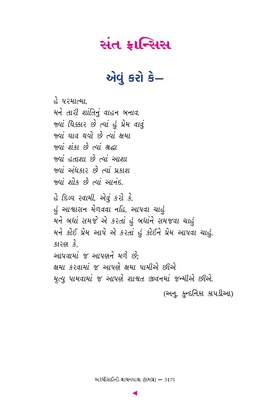 સંત ફ્રાન્સિસ
એવું કરો કે—
હે પરમાત્મા,
મને તારી શાંતિનું વાહન બનાવ.
જ્યાં ધિક્કાર છે ત્યાં હું પ્રેમ વાવું
જ્યાં ઘાવ થયો છે ત્યાં ક્ષમા
જ્યાં શંકા છે ત્યાં શ્રદ્ધા
જ્યાં હતાશા છે ત્યાં આશા
જ્યાં અંધકાર છે ત્યાં પ્રકાશ
જ્યાં શોક છે ત્યાં આનંદ.
હે દિવ્ય સ્વામી, એવું કરો કે,
હું આશ્વાસન મેળવવા નહિ, આપવા ચાહું
મને બધાં સમજે એ કરતાં હું બધાંને સમજવા ચાહું
મને કોઈ પ્રેમ આપે એ કરતાં હું કોઈને પ્રેમ આપવા ચાહું.
કારણ કે,
આપવામાં જ આપણને મળે છે;
ક્ષમા કરવામાં જ આપણે ક્ષમા પામીએ છીએ
મૃત્યુ પામવામાં જ આપણે શાશ્વત જીવનમાં જન્મીએ છીએ.
(અનુ. કુન્દનિકા કાપડીઆ)
અરધીસદીની વાચનયાત્રા — 3175